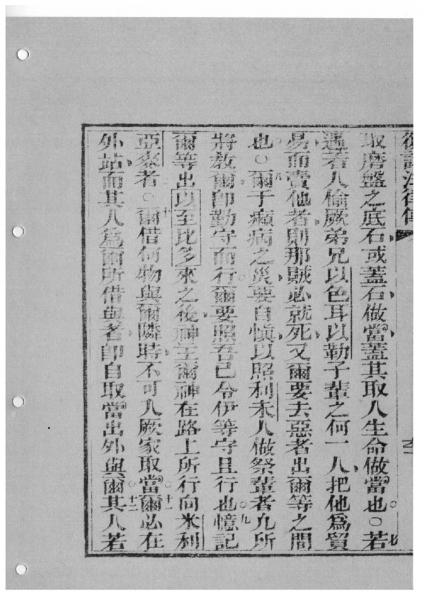 復講法律傳
取磨盤之底石或蓋石做當蓋其取人生命做當也○若
遇着人偷厥弟兄以色耳以勒子輩之何一人把他為貿
易而賣他者則那賊必就死又爾要去惡者出爾等之間
也○爾于癩病之災要自慎以照利未人做祭輩者凡所
將教爾即勤守而行爾要照吾已令伊等守且行也憶記
爾等出以至比多來之後神主爾神在路上所行向米利
亞麥者○爾借何物與爾隣時不可入厥家取當爾必在
外站而其人為爾所借與者即自取當出外與爾其人若